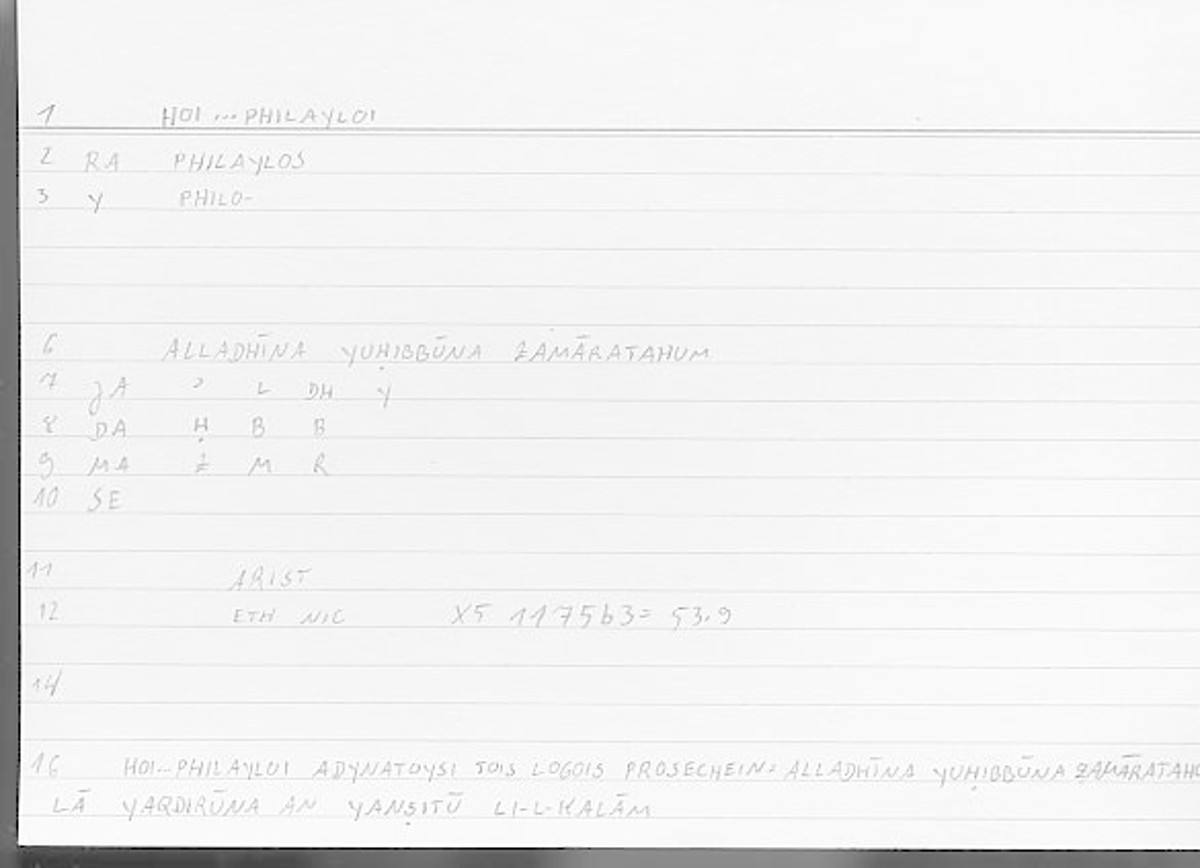 1 HOI ... PHILAYLOI
2 RA PHILAYLOS
3 Y PHILO-
6 ALLADHĪNA YUḤIBBŪNA ZAMĀRATAHUM
7 JA ʾ L DH Y
8 DA Ḥ B B
9 MA Z M R
10 SE
11 ARIST
12 ETH NIC X5 1175b3= 53.9
14
16 HOI...PHILAYLOI ADYNATOYSI TOIS LOGOIS PROSECHEIN= ALLADHĪNA YUḤIBBŪNA ZAMĀRATAHU
LĀ YAQDIRŪNA AN YANṢITŪ LI-L-KALĀM